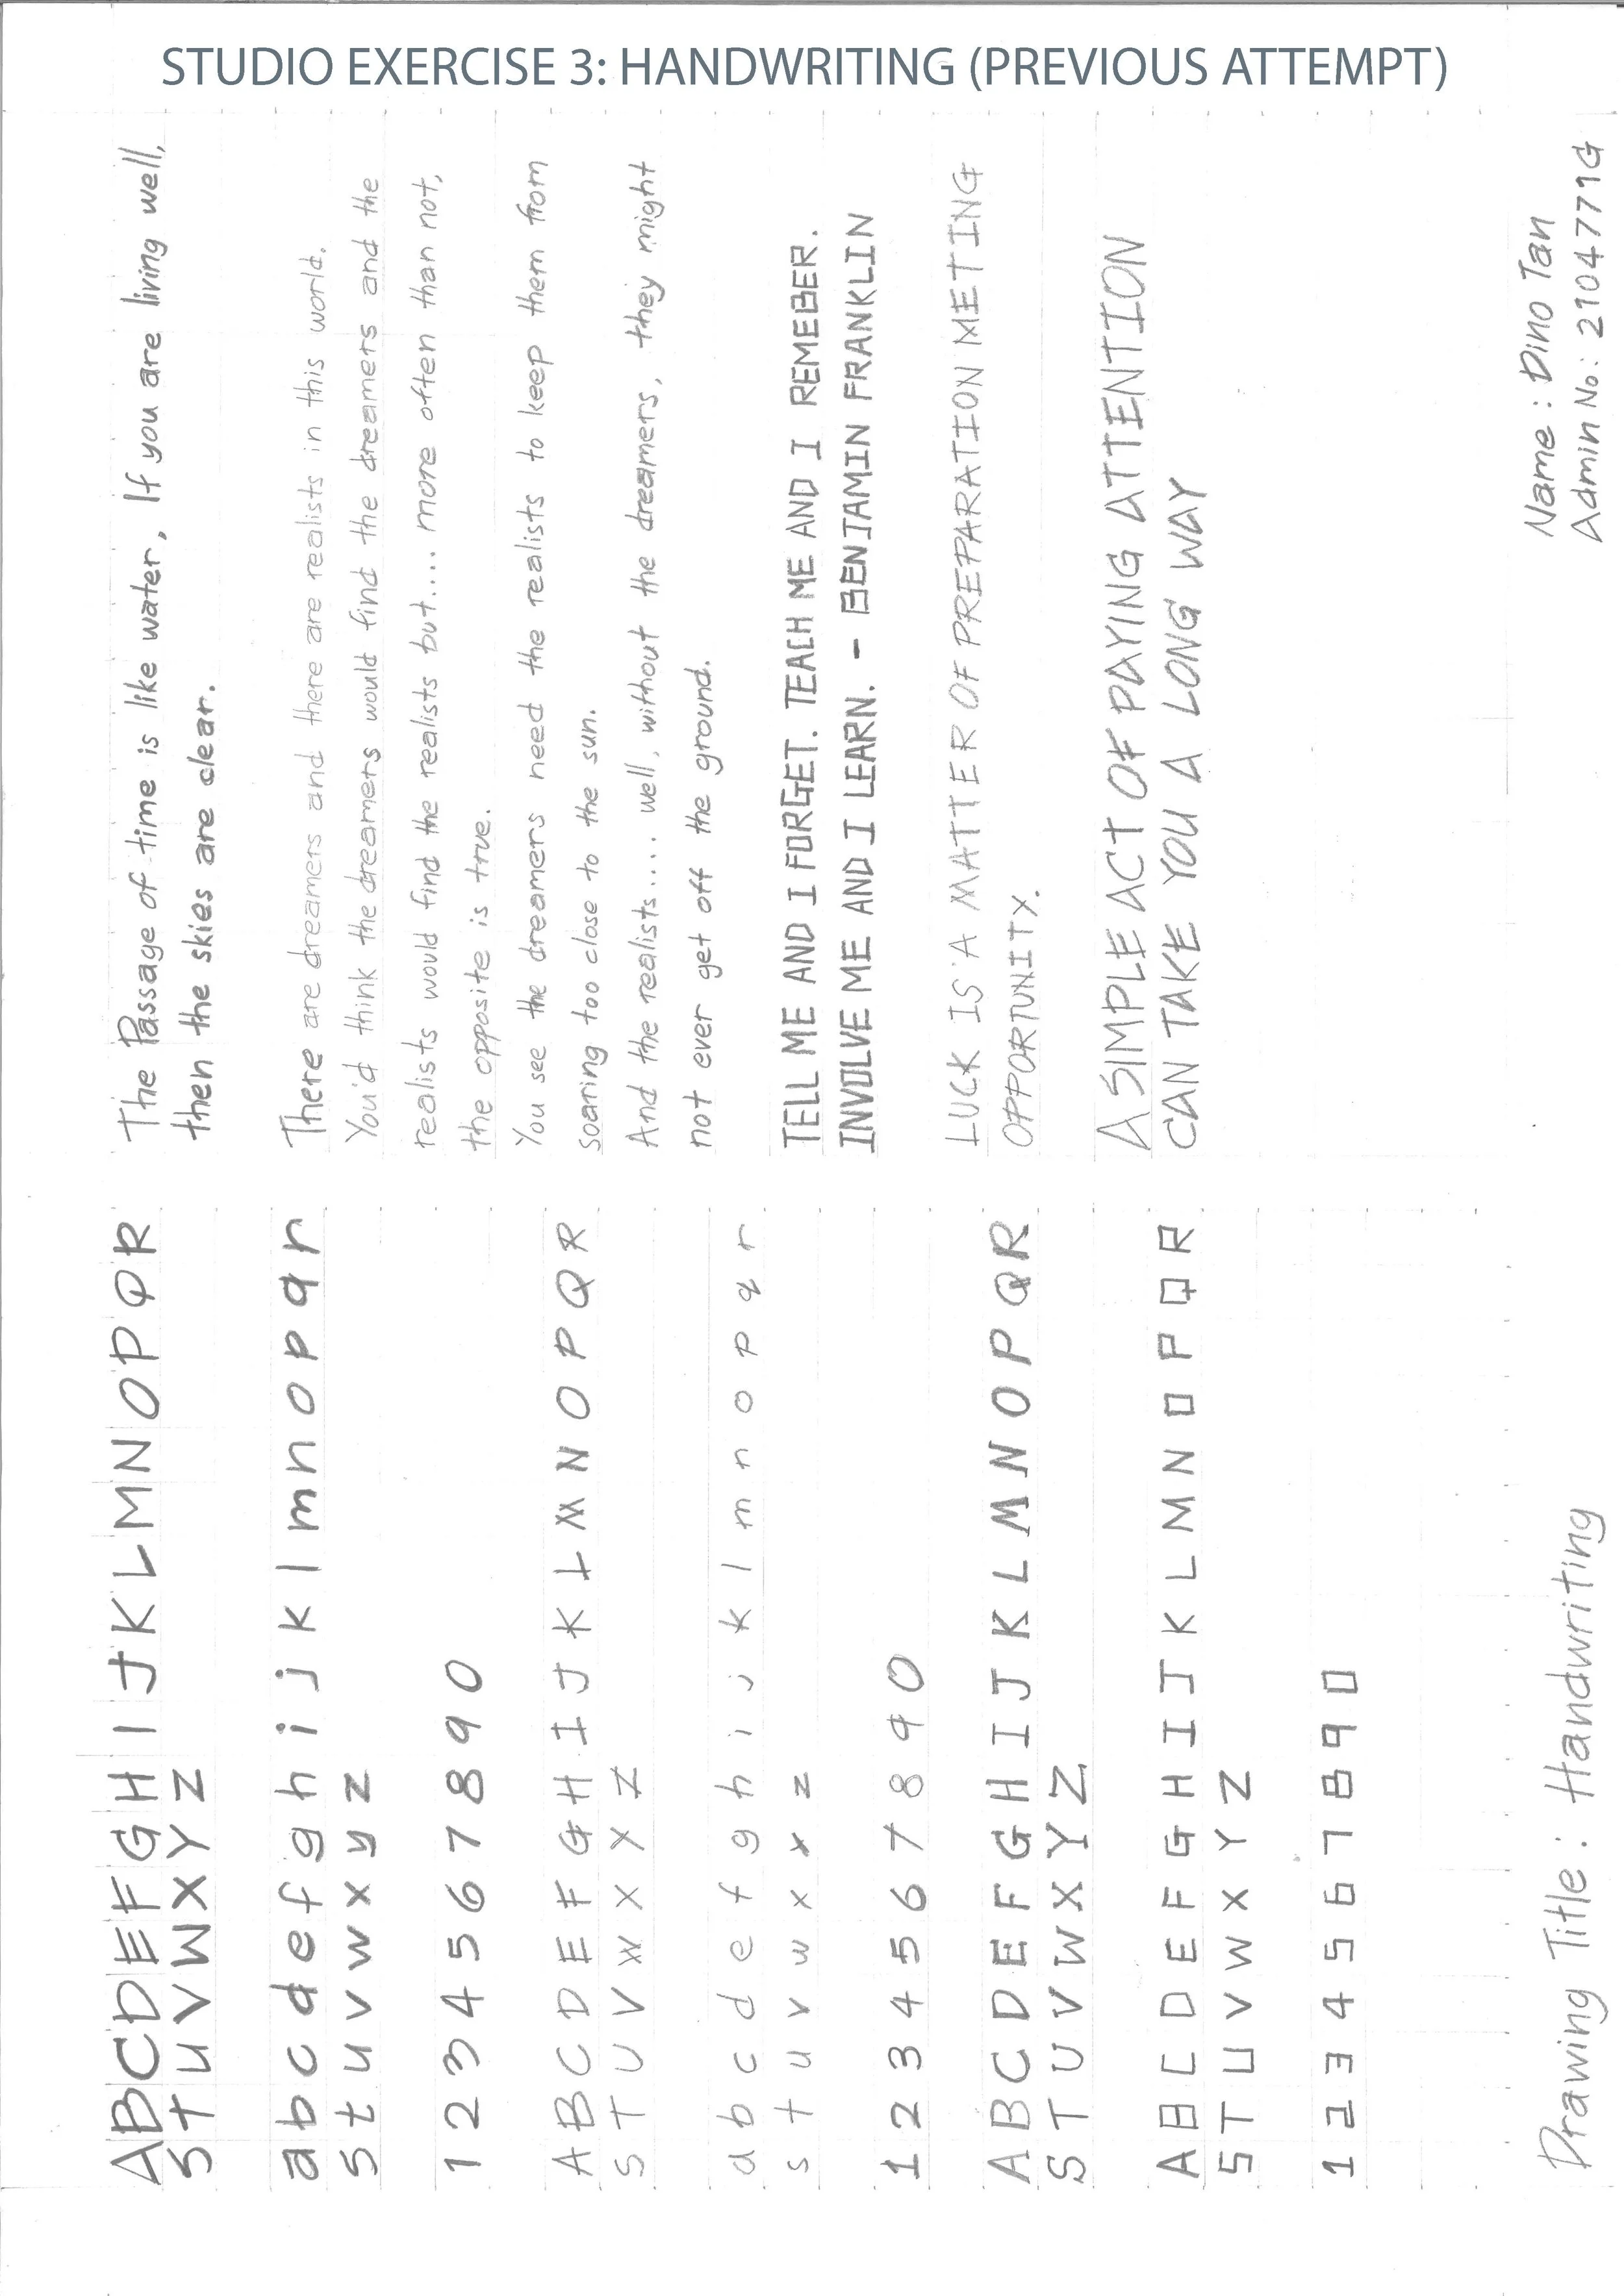 STUDIO EXERCISE 3: HANDWRITING (PREVIOUS ATTEMPT)
ABCDEFGHIJKLMNOPQR
STUVWXYZ
abcdefghijklmnopqr
stuvwxyz
1234567890
ABCDEFGHIJKLMNOPQR
STUVWXYZ
abcdefghijklmnopqr
stuvwxyz
1234567890
ABCDEFGHIJKLMNOPQR
STUVWXYZ
ABCDEFGHIJKLMNOPQR
STUVWXYZ
1234567890
The Passage of time is like water, If you are living well,
then the skies are clear.
There are dreamers and there are realists in this world.
You'd think the dreamers would find the dreamers and the
realists would find the realists but.... more often than not,
the opposite is true.
You see the dreamers need the realists to keep them from
soaring too close to the sun.
And the realists.... well, without the dreamers, they might
not ever get off the ground.
TELL ME AND I FORGET. TEACH ME AND I REMEBER.
INVOLVE ME AND I LEARN. - BENJAMIN FRANKLIN
LUCK IS A MATTER OF PREPARATION MEETING
OPPORTUNITY.
A SIMPLE ACT OF PAYING ATTENTION
CAN TAKE YOU A LONG WAY
Drawing Title: Handwriting
Name: Dino Tan
Admin No.: 2104771G